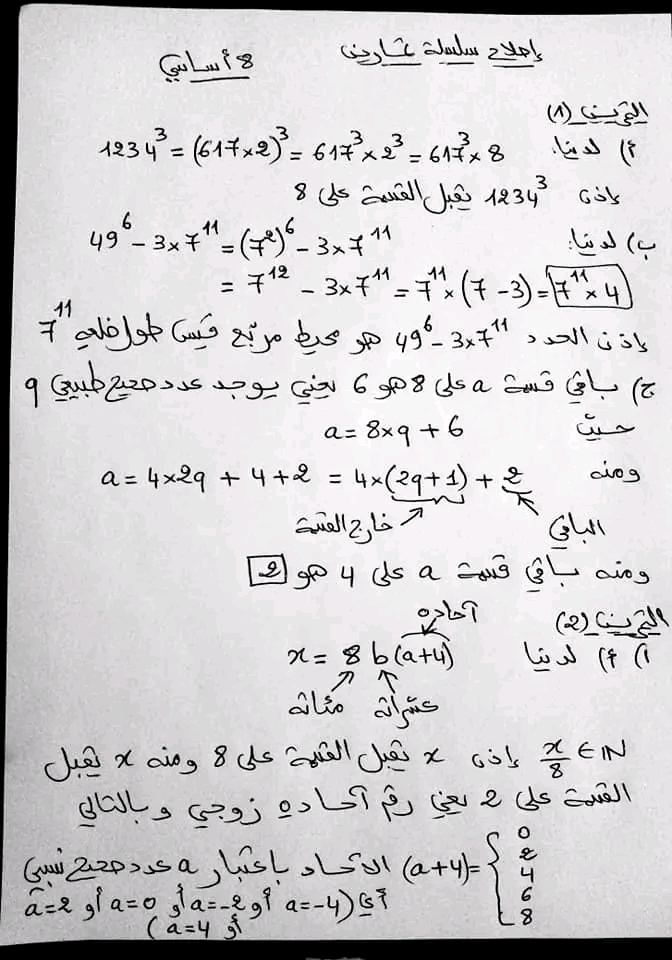 إصلاح سلسلة تمارين 8 أساسي
التمرين (1)
أ) لدينا: 1234³ = (617×2)³ = 617³×2³ = 617³×8
إذن 1234³ يقبل القسمة على 8
ب) لدينا: 49⁶ − 3×7¹¹ = (7²)⁶ − 3×7¹¹
= 7¹² − 3×7¹¹ = 7¹¹×(7−3) = 7¹¹×4
إذن العدد 49⁶ − 3×7¹¹ هو محيط مربّع قيس طول ضلعه 7¹¹
ج) باقي قسمة a على 8 هو 6 يعني يوجد عدد صحيح طبيعي q
حيث a = 8×q + 6
ومنه a = 4×2q + 4 + 2 = 4×(2q+1) + 2
خارج القسمة الباقي
ومنه باقي قسمة a على 4 هو 2
التمرين (2) آحاده
1) أ) لدينا x = 8 b (a+4)
عشراته مئاته
x/8 ∈ IN إذن x تقبل القسمة على 8 ومنه x يقبل
القسمة على 2 يعني رقم آحاده زوجي وبالتالي
(a+4) = { 0 2 4 6 8 الآحاد باعتبار a عدد صحيح نسبي
أي (a=-4 أو a=-2 أو a=0 أو a=2
أو a=4)